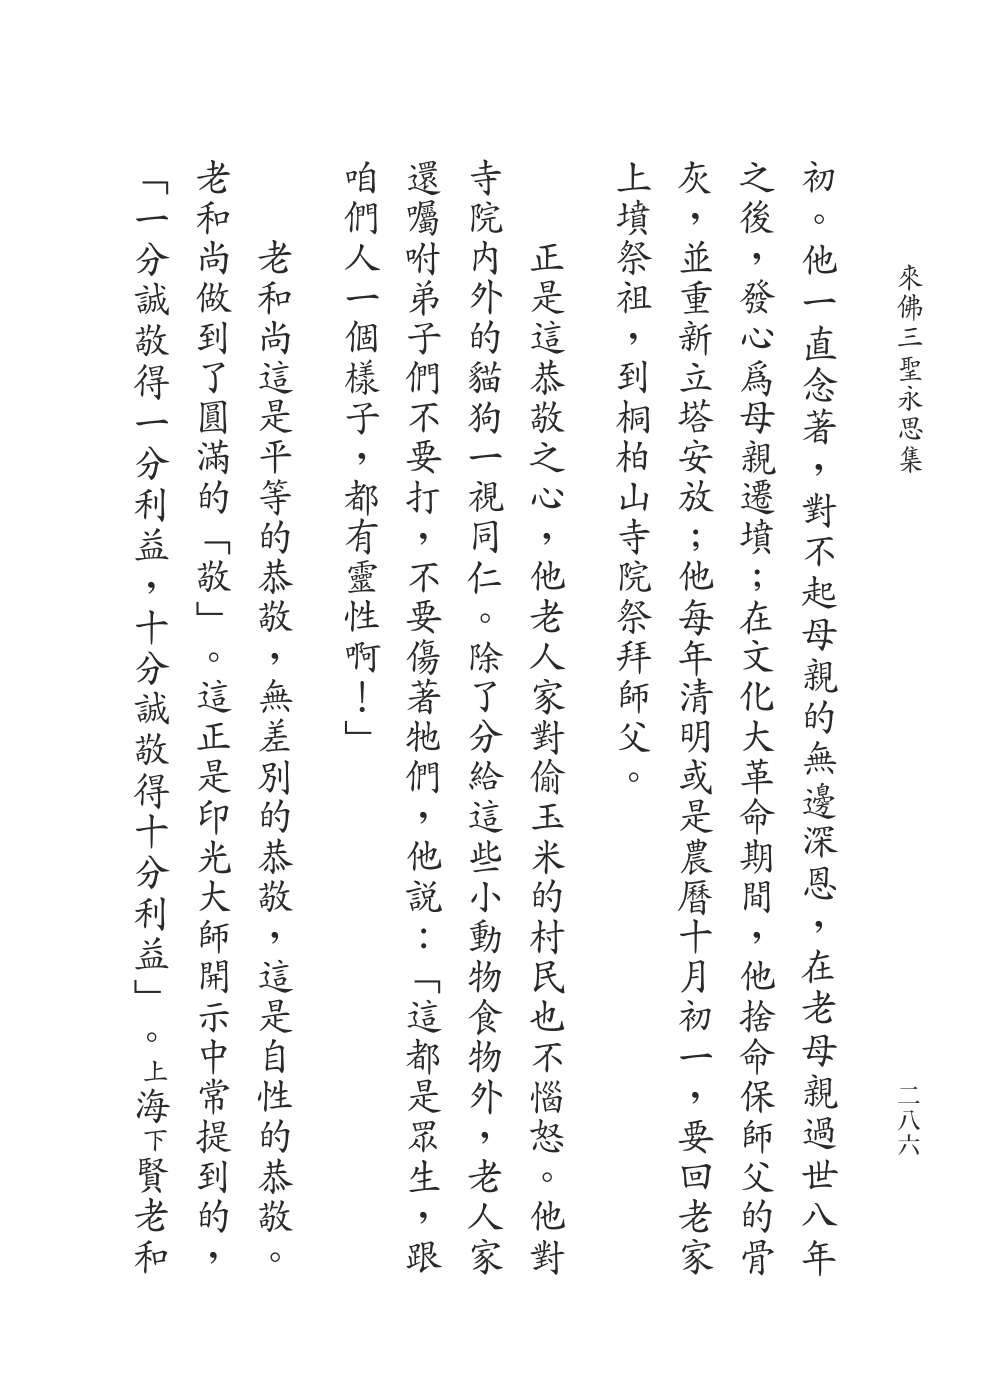 來佛三聖永思集
二八六
初。他一直念著，對不起母親的無邊深恩，在老母親過世八年
之後，發心爲母親遷墳；在文化大革命期間，他捨命保師父的骨
灰，並重新立塔安放；他每年清明或是農曆十月初一，要回老家
上墳祭祖，到桐柏山寺院祭拜師父。
正是這恭敬之心，他老人家對偷玉米的村民也不惱怒。他對
寺院內外的貓狗一視同仁。除了分給這些小動物食物外，老人家
還囑咐弟子們不要打，不要傷著牠們，他説：「這都是眾生，跟
咱們人一個樣子，都有靈性啊！」
老和尚這是平等的恭敬，無差別的恭敬，這是自性的恭敬。
老和尚做到了圓滿的「敬」。這正是印光大師開示中常提到的，
「一分誠敬得一分利益，十分誠敬得十分利益」。上海下賢老和